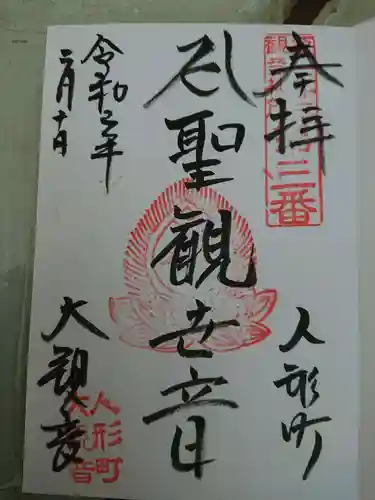 奉拝
三番
人形町
聖観世音
令和 年
月十日
大観音
人形町
大観音